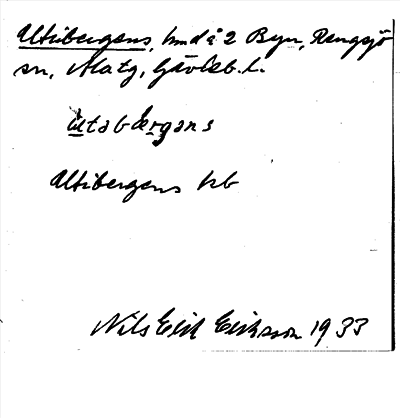 Utibergens, hmd å 2 Byn, Rengsjö
sn, Alatg, Gävleb. l.
utabærgans
Utibergens hb
Nils Erik Eriksson 1933